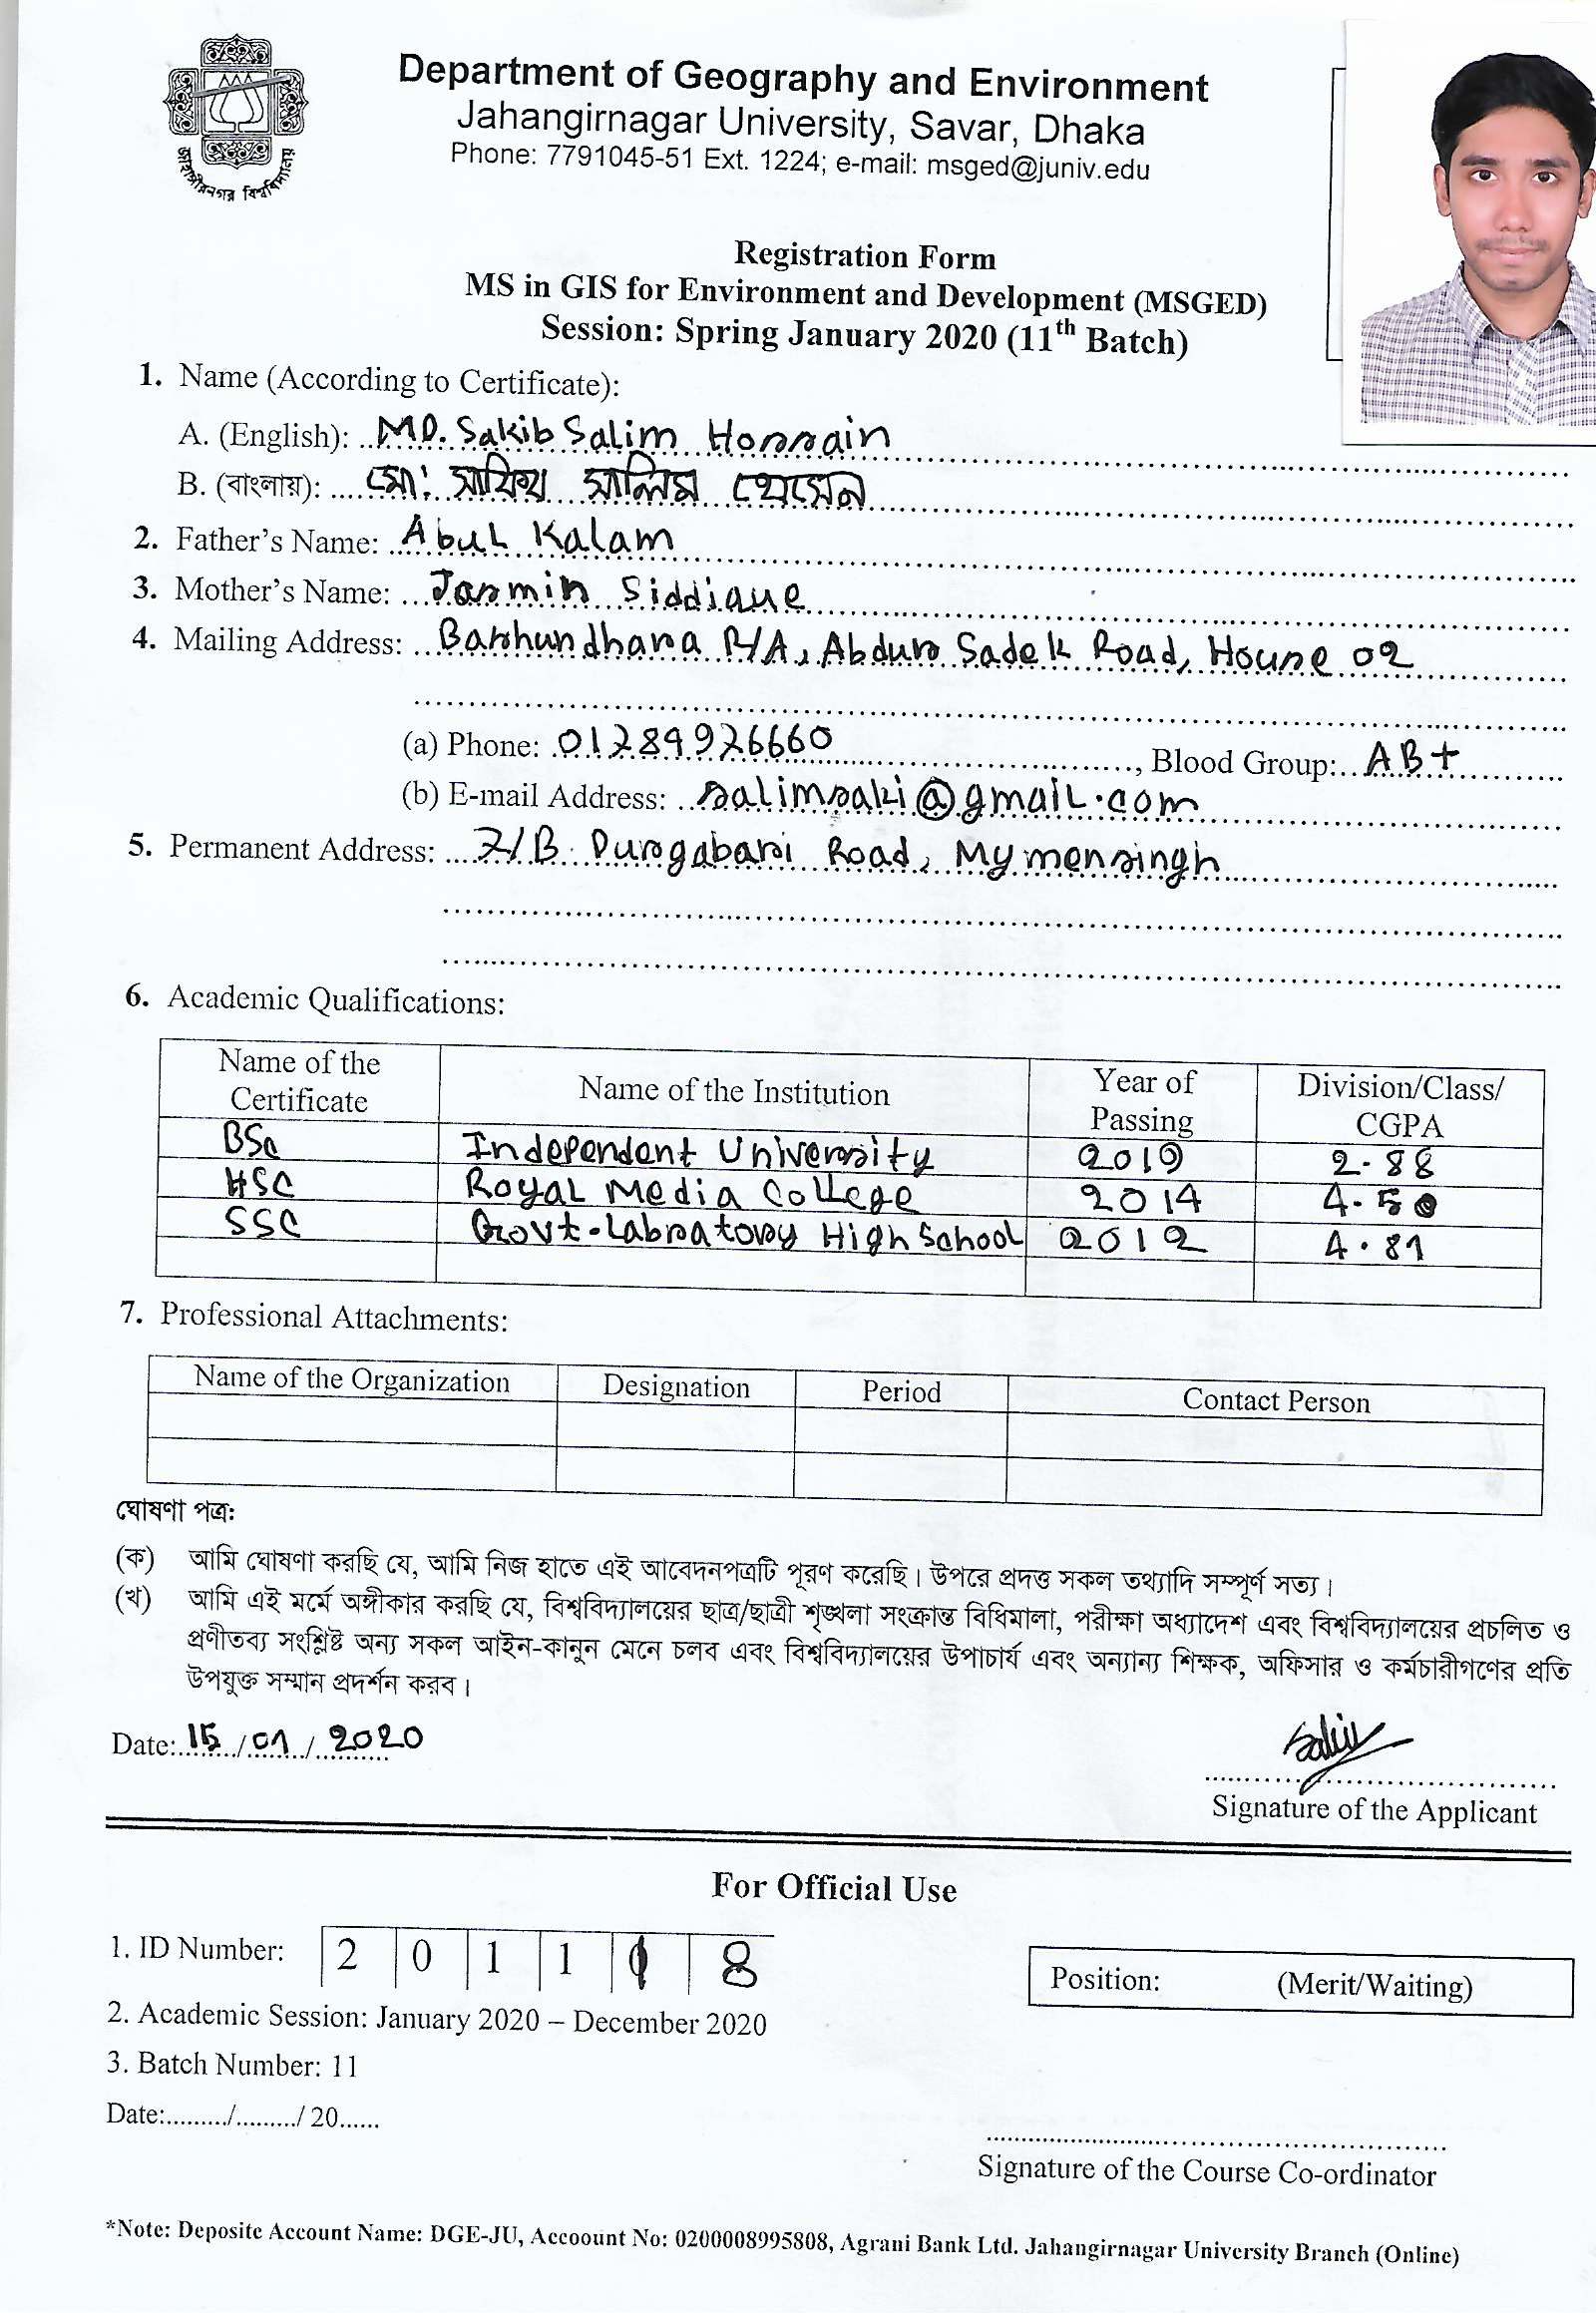 জাহাঙ্গীরনগর বিশ্ববিদ্যালয়
Department of Geography and Environment
Jahangirnagar University, Savar, Dhaka
Phone: 7791045-51 Ext. 1224; e-mail: msged@juniv.edu
Registration Form
MS in GIS for Environment and Development (MSGED)
Session: Spring January 2020 (11th Batch)
1. Name (According to Certificate):
A. (English): MD. Sakib Salim Hossain
B. (বাংলায়): মো: সাকিব সালিম হোসেন
2. Father's Name: Abul Kalam
3. Mother's Name: Jasmin Siddique
4. Mailing Address: Bashundhara R/A, Abdur Sadek Road, House 02
(a) Phone: 01789926660, Blood Group: AB+
(b) E-mail Address: salimsaki@gmail.com
5. Permanent Address: 7/B Durgabari Road, Mymensingh
6. Academic Qualifications:
Name of the Certificate Name of the Institution Year of Passing Division/Class/ CGPA
BSc Independent University 2019 2.88
HSC Royal Media College 2014 4.50
SSC Govt. Labratory High School 2012 4.81
7. Professional Attachments:
Name of the Organization Designation Period Contact Person
ঘোষণা পত্র:
(ক) আমি ঘোষণা করছি যে, আমি নিজ হাতে এই আবেদনপত্রটি পূরণ করেছি। উপরে প্রদত্ত সকল তথ্যাদি সম্পূর্ণ সত্য।
(খ) আমি এই মর্মে অঙ্গীকার করছি যে, বিশ্ববিদ্যালয়ের ছাত্র/ছাত্রী শৃঙ্খলা সংক্রান্ত বিধিমালা, পরীক্ষা অধ্যাদেশ এবং বিশ্ববিদ্যালয়ের প্রচলিত ও
প্রণীতব্য সংশ্লিষ্ট অন্য সকল আইন-কানুন মেনে চলব এবং বিশ্ববিদ্যালয়ের উপাচার্য এবং অন্যান্য শিক্ষক, অফিসার ও কর্মচারীগণের প্রতি
উপযুক্ত সম্মান প্রদর্শন করব।
Date: 15/01/2020
Signature of the Applicant
For Official Use
1. ID Number: 2 0 1 1 1 8
Position: (Merit/Waiting)
2. Academic Session: January 2020 – December 2020
3. Batch Number: 11
Date:........./........./ 20......
Signature of the Course Co-ordinator
*Note: Deposite Account Name: DGE-JU, Accoount No: 0200008995808, Agrani Bank Ltd. Jahangirnagar University Branch (Online)